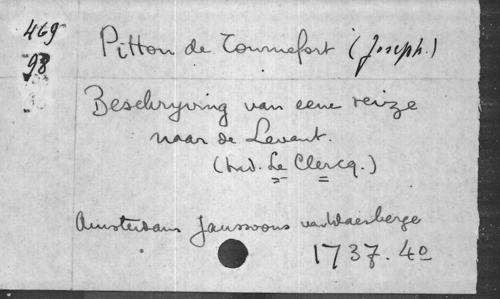 469
98
Pitton de Tournefort (Joseph.)
Beschryving van eene reize
naar de Levant.
(trad. Le Clercq.)
Amsterdam Janssoons van Waesberge
1737. 4o